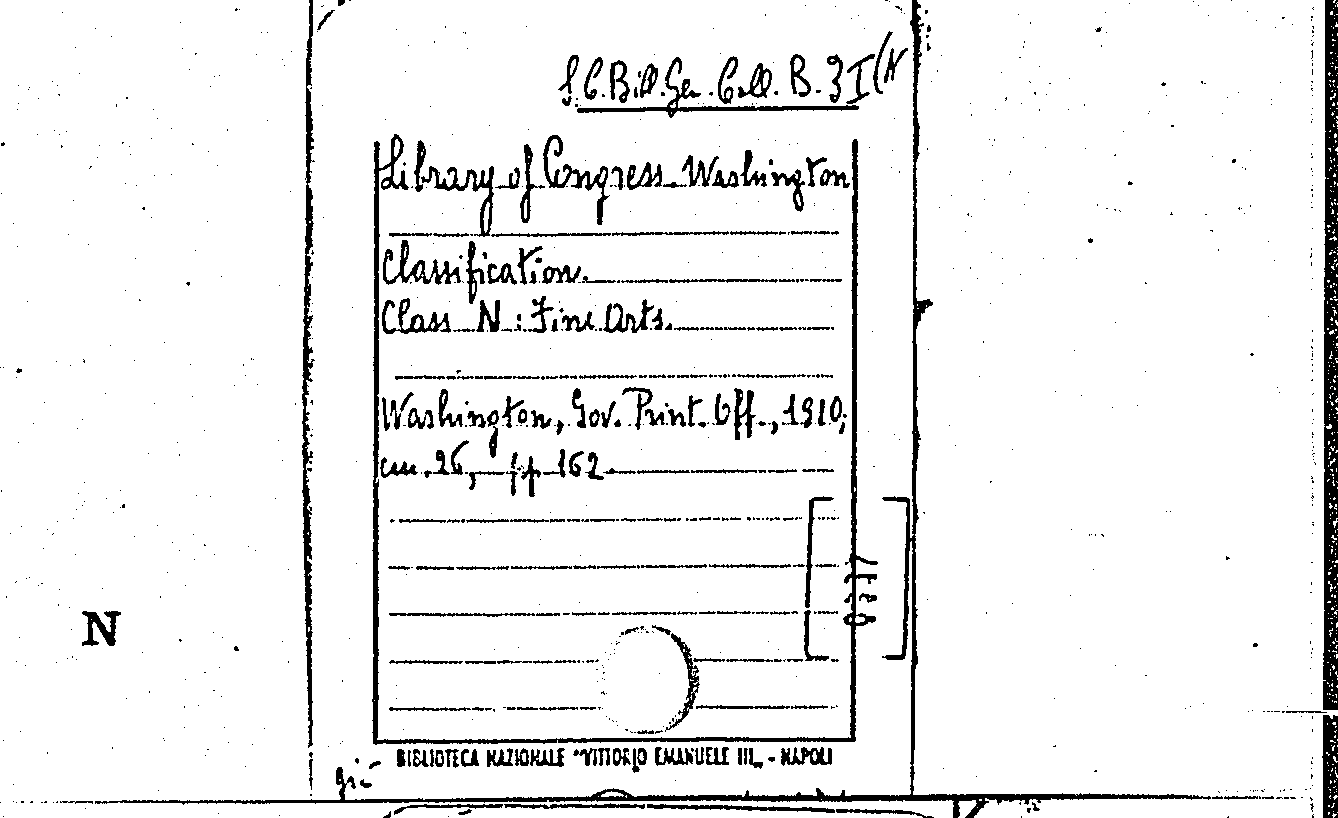 S.C.Bibl.Gen.Coll. B. 3 I (N
Library of Congress Washington
Classification.
Class N : Fine Arts.
Washington, Gov. Print. Off., 1910;
cm. 26, pp 162.
N
BIBLIOTECA NAZIONALE "VITTORIO EMANUELE III„ - NAPOLI
già